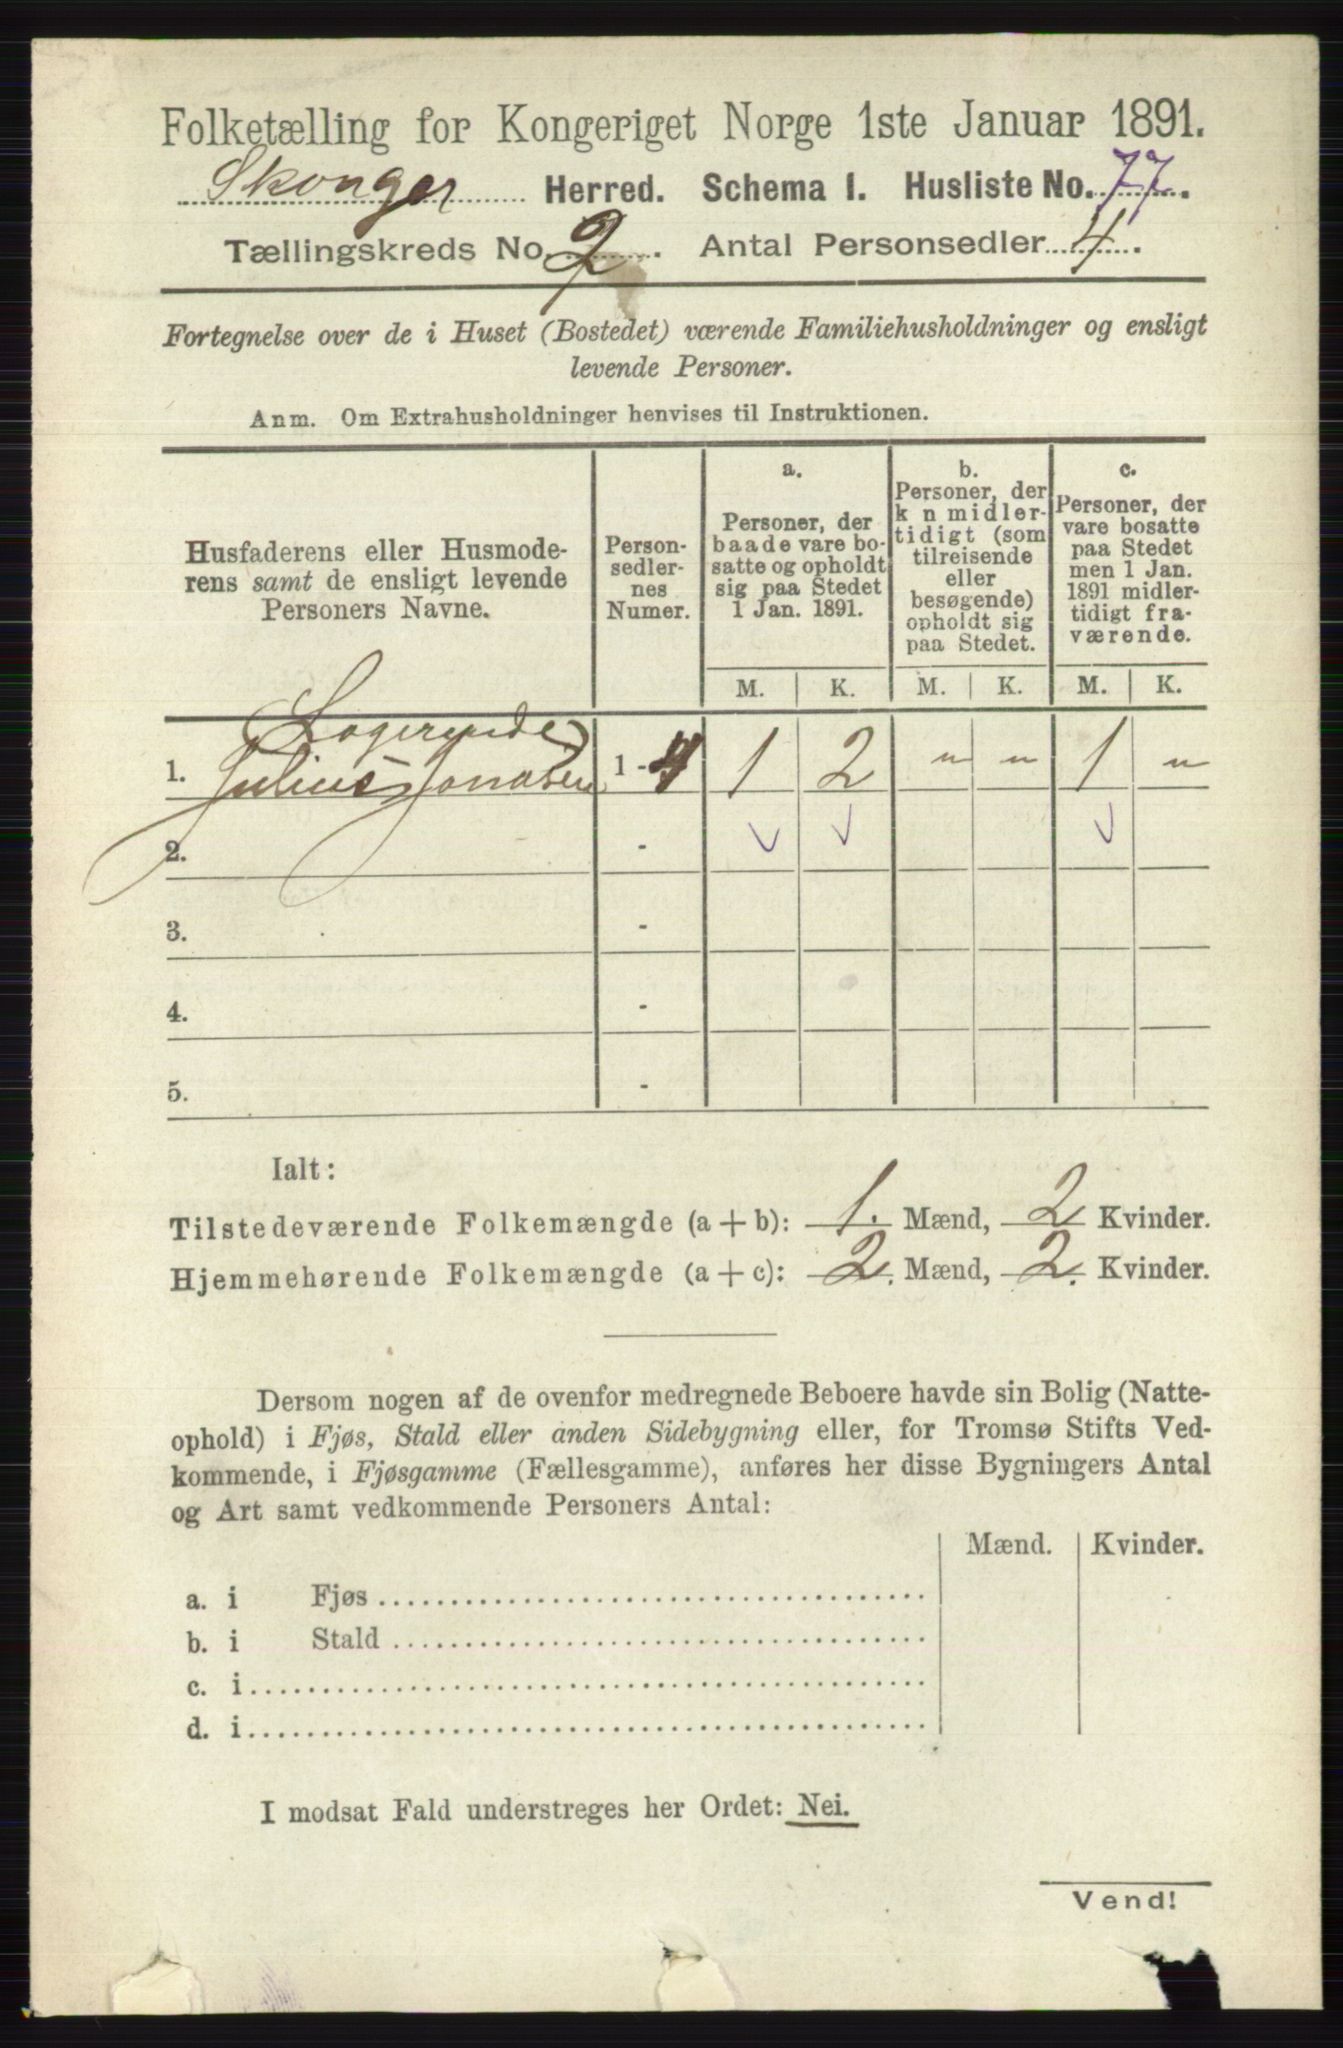 Folketælling for Kongeriget Norge 1ste Januar 1891.
Skonger Herred. Schema I. Husliste No. 77.
Tællingskreds No. 2. Antal Personsedler 4.
Fortegnelse over de i Huset (Bostedet) værende Familiehusholdninger og ensligt
levende Personer.
Anm. Om Extrahusholdninger henvises til Instruktionen.
Husfaderens eller Husmode-
rens samt de ensligt levende
Personers Navne.
Person-
sedler-
nes
Numer.
a.
Personer, der
baade vare bo-
satte og opholdt
sig paa Stedet
1 Jan. 1891.
b.
Personer, der
k n midler-
tidigt (som
tilreisende
eller
besøgende)
opholdt sig
paa Stedet.
c.
Personer, der
vare bosatte
paa Stedet
men 1 Jan.
1891 midler-
tidigt fra-
værende.
M. K. M. K. M. K.
Logerende
1. Julius Jonasen 1-4 1 2 " " 1 "
2. -
3. -
4. -
5. -
Ialt:
Tilstedeværende Folkemængde (a+b): 1. Mænd, 2 Kvinder.
Hjemmehørende Folkemængde (a+c): 2. Mænd, 2. Kvinder.
Dersom nogen af de ovenfor medregnede Beboere havde sin Bolig (Natte-
ophold) i Fjøs, Stald eller anden Sidebygning eller, for Tromsø Stifts Ved-
kommende, i Fjøsgamme (Fællesgamme), anføres her disse Bygningers Antal
og Art samt vedkommende Personers Antal:
Mænd. Kvinder.
a. i Fjøs
b. i Stald
c. i
d. i
I modsat Fald understreges her Ordet: Nei.
Vend!